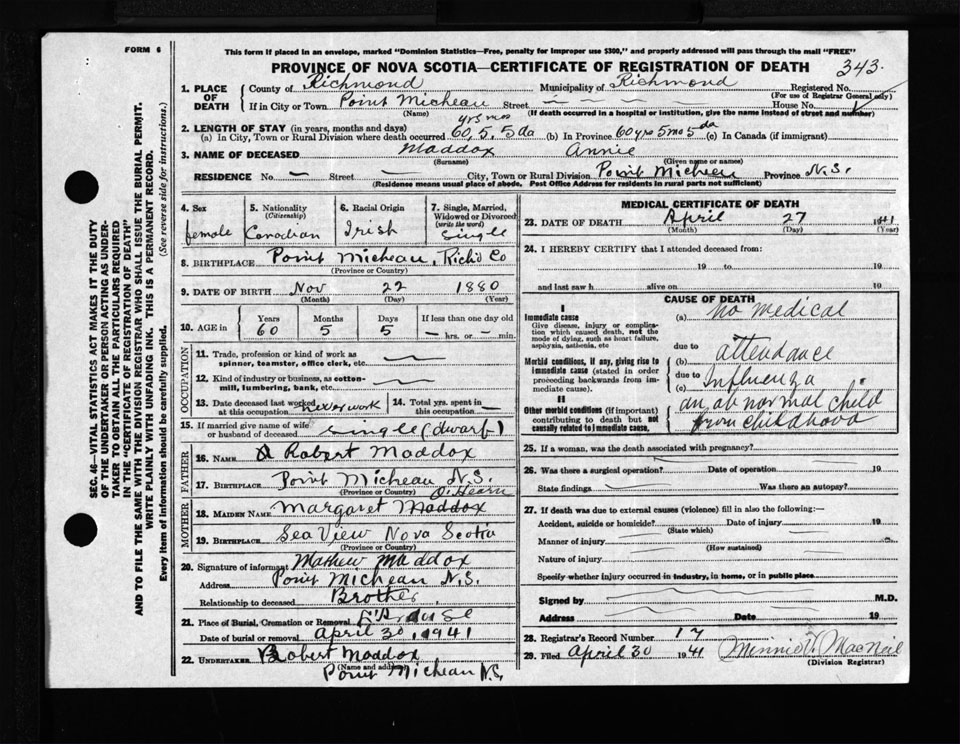 FORM 6
This form if placed in an envelope, marked "Dominion Statistics—Free, penalty for improper use $300," and properly addressed will pass through the mail "FREE"
PROVINCE OF NOVA SCOTIA—CERTIFICATE OF REGISTRATION OF DEATH 343.
1. PLACE OF DEATH
County of Richmond Municipality of Richmond Registered No.
(For use of Registrar General only)
If in City or Town Point Micheau Street House No.
(Name) (If death occurred in a hospital or institution, give the name instead of street and number)
2. LENGTH OF STAY (in years, months and days)
yrs mos
(a) In City, Town or Rural Division where death occurred 60, 5, 5 da (b) In Province 60 yrs 5 mo 5 da (c) In Canada (if immigrant)
3. NAME OF DECEASED Maddox Annie
(Surname) (Given name or names)
RESIDENCE No. — Street — City, Town or Rural Division Point Micheau Province N.S.
(Residence means usual place of abode. Post Office Address for residents in rural parts not sufficient)
4. Sex
female
5. Nationality
(Citizenship)
Canadian
6. Racial Origin
Irish
7. Single, Married, Widowed or Divorced
(write the word)
Single
8. BIRTHPLACE Point Micheau, Rich'd Co
(Province or Country)
9. DATE OF BIRTH Nov 22 1880
(Month) (Day) (Year)
10. AGE in
Years Months Days If less than one day old
60 5 5 — hrs. or — min.
OCCUPATION
11. Trade, profession or kind of work as spinner, teamster, office clerk, etc.
12. Kind of industry or business, as cotton-mill, lumbering, bank, etc.
13. Date deceased last worked at this occupation never work
14. Total yrs. spent in this occupation —
15. If married give name of wife or husband of deceased single (dwarf)
FATHER
16. Name Robert Maddox
17. Birthplace Point Micheau N.S.
(Province or Country)
MOTHER
O'Hearn
18. Maiden Name Margaret Maddox
19. Birthplace Sea View Nova Scotia
(Province or Country)
20. Signature of informant Mathew Maddox
Address Point Micheau N.S.
Relationship to deceased Brother
21. Place of Burial, Cremation or Removal
Date of burial or removal April 30, 1941
22. UNDERTAKER Robert Maddox
(Name and address)
Point Micheau N.S.
MEDICAL CERTIFICATE OF DEATH
23. DATE OF DEATH April 27 1941
(Month) (Day) (Year)
24. I HEREBY CERTIFY that I attended deceased from:
19 to 19
and last saw h alive on 19
CAUSE OF DEATH
I
Immediate cause
Give disease, injury or complication which caused death, not the mode of dying, such as heart failure, asphyxia, asthenia, etc
Morbid conditions, if any, giving rise to immediate cause (stated in order proceeding backwards from immediate cause).
II
Other morbid conditions (if important) contributing to death but not causally related to immediate cause.
(a) no medical
due to
(b) attendance
due to
(c) Influenza
an abnormal child
from childhood
25. If a woman, was the death associated with pregnancy?
26. Was there a surgical operation? Date of operation 19
State findings Was there an autopsy?
27. If death was due to external causes (violence) fill in also the following:—
Accident, suicide or homicide? Date of injury 19
(State which)
Manner of injury
(How sustained)
Nature of injury
Specify whether injury occurred in industry, in home, or in public place
Signed by M.D.
Address Date 19
28. Registrar's Record Number 17
29. Filed April 30 1941 Minnie V. MacNeil
(Division Registrar)
SEC. 46—VITAL STATISTICS ACT MAKES IT THE DUTY
OF THE UNDERTAKER OR PERSON ACTING AS UNDER-
TAKER TO OBTAIN ALL THE PARTICULARS REQUIRED
IN THE "CERTIFICATE OF REGISTRATION OF DEATH"
AND TO FILE THE SAME WITH THE DIVISION REGISTRAR WHO SHALL ISSUE THE BURIAL PERMIT.
WRITE PLAINLY WITH UNFADING INK. THIS IS A PERMANENT RECORD.
Every item of information should be carefully supplied. (See reverse side for instructions.)